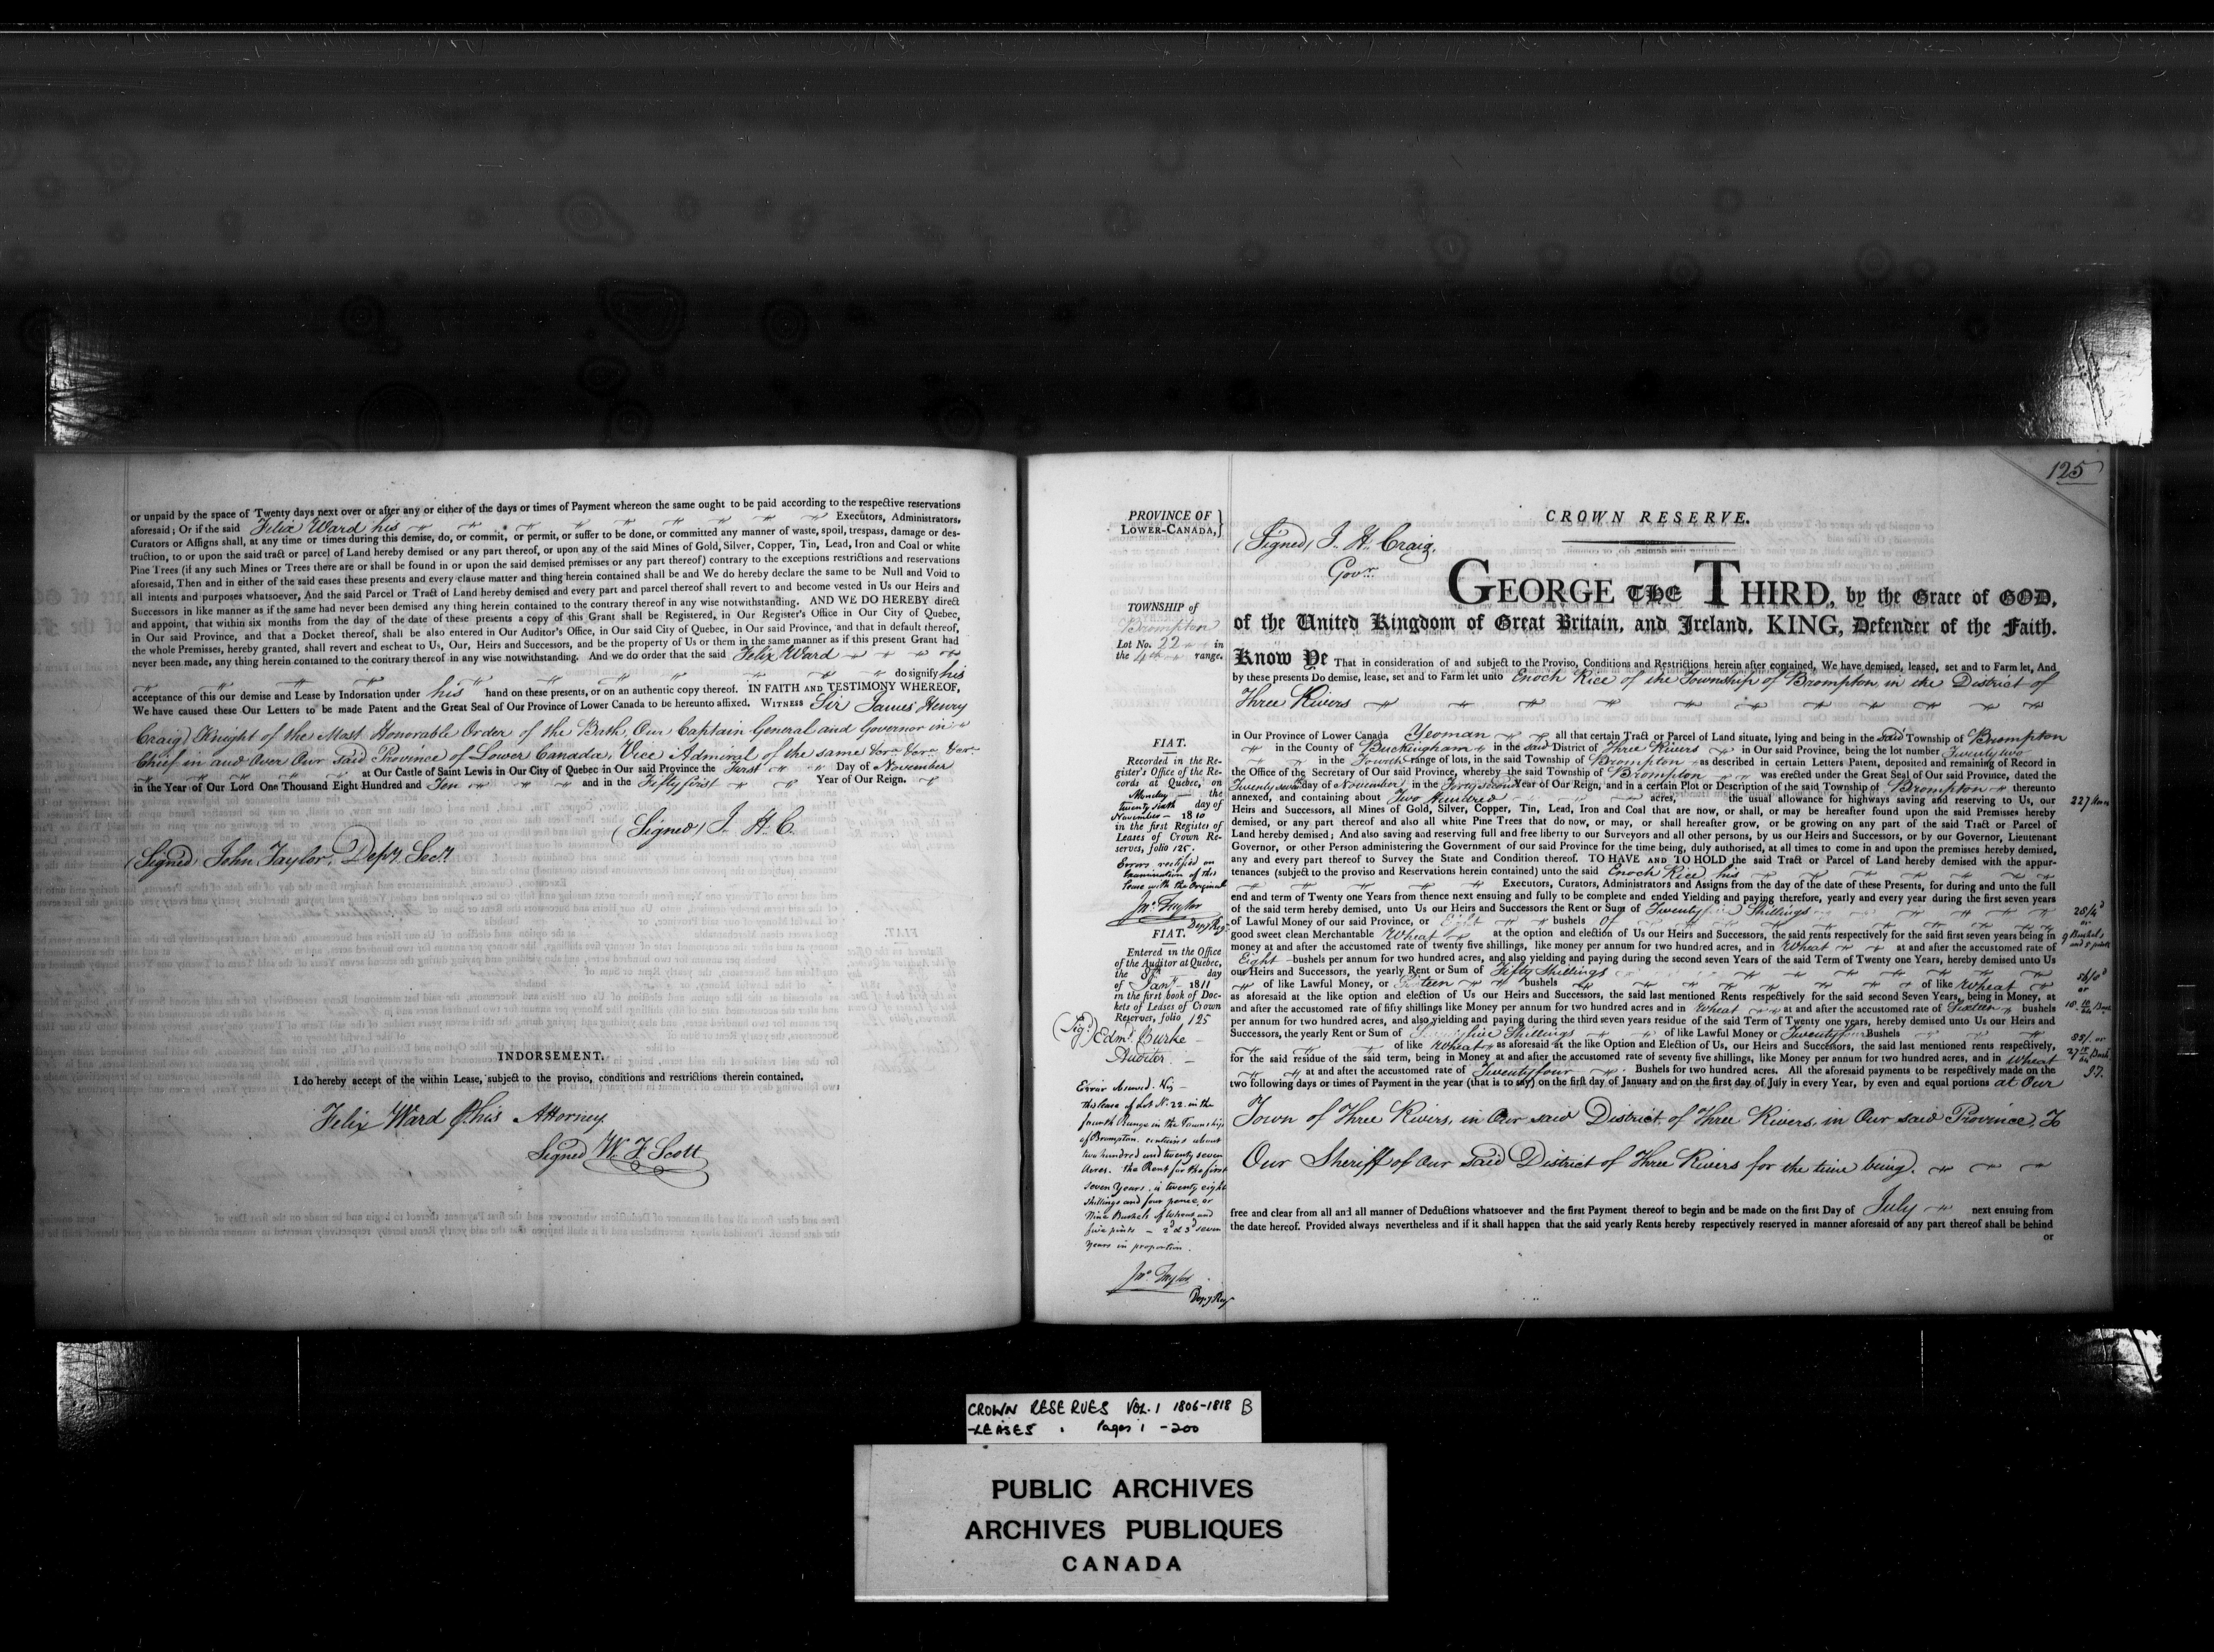 or unpaid by the space of Twenty days next over or after any or either of the days or times of Payment whereon the same ought to be paid according to the respective reservations
aforesaid; Or if the said Felix Ward his Executors, Administrators,
Curators or Assigns shall, at any time or times during this demise, do, or commit, or permit, or suffer to be done, or committed any manner of waste, spoil, trespass, damage or des-
truction, to or upon the said tract or parcel of Land hereby demised or any part thereof, or upon any of the said Mines of Gold, Silver, Copper, Tin, Lead, Iron and Coal or white
Pine Trees (if any such Mines or Trees there are or shall be found in or upon the said demised premises or any part thereof) contrary to the exceptions restrictions and reservations
aforesaid, Then and in either of the said cases these presents and every clause matter and thing herein contained shall be and We do hereby declare the same to be Null and Void to
all intents and purposes whatsoever, And the said Parcel or Tract of Land hereby demised and every part and parcel thereof shall revert to and become vested in Us our Heirs and
Successors in like manner as if the same had never been demised any thing herein contained to the contrary thereof in any wise notwithstanding. AND WE DO HEREBY direct
and appoint, that within six months from the day of the date of these presents a copy of this Grant shall be Registered, in Our Register's Office in Our City of Quebec,
in Our said Province, and that a Docket thereof, shall be also entered in Our Auditor's Office, in Our said City of Quebec, in Our said Province, and that in default thereof,
the whole Premises, hereby granted, shall revert and escheat to Us, Our, Heirs and Successors, and be the property of Us or them in the same manner as if this present Grant had
never been made, any thing herein contained to the contrary thereof in any wise notwithstanding. And we do order that the said Felix Ward
do signify his
acceptance of this our demise and Lease by Indorsation under his hand on these presents, or on an authentic copy thereof. IN FAITH AND TESTIMONY WHEREOF,
We have caused these Our Letters to be made Patent and the Great Seal of Our Province of Lower Canada to be hereunto affixed. WITNESS Sir James Henry
Craig Knight of the Most Honorable Order of the Bath, Our Captain General and Governor in
Chief in and Over Our Said Province of Lower Canada, Vice Admiral of the same
at Our Castle of Saint Lewis in Our City of Quebec in Our said Province the First Day of November
in the Year of Our Lord One Thousand Eight Hundred and Ten and in the Fiftyfirst Year of Our Reign.
(Signed) J. H. C.
(Signed) John Taylor, Depy. Secy.
INDORSEMENT.
I do hereby accept of the within Lease, subject to the proviso, conditions and restrictions therein contained,
Felix Ward his Attorney
Signed W. F. Scott
125
PROVINCE OF
LOWER-CANADA,}
CROWN RESERVE.
(Signed) J. H. Craig,
Govr.
TOWNSHIP of
Brompton
Lot No. 22 in
the 4th range.
GEORGE THE THIRD, by the Grace of GOD,
of the United Kingdom of Great Britain, and Ireland, KING, Defender of the Faith.
Know Ye That in consideration of and subject to the Proviso, Conditions and Restrictions herein after contained, We have demised, leased, set and to Farm let, And
by these presents Do demise, lease, set and to Farm let unto Enoch Rice of the Township of Brompton, in the District of
Three Rivers
in Our Province of Lower Canada Yeoman all that certain Tract or Parcel of Land situate, lying and being in the said Township of Brompton
in the County of Buckingham in the said District of Three Rivers in Our said Province, being the lot number Twenty two
in the Fourth range of lots, in the said Township of Brompton as described in certain Letters Patent, deposited and remaining of Record in
the Office of the Secretary of Our said Province, whereby the said Township of Brompton was erected under the Great Seal of Our said Province, dated the
Twenty seventh day of November, in the Forty second Year of Our Reign, and in a certain Plot or Description of the said Township of Brompton thereunto
annexed, and containing about Two Hundred acres, the usual allowance for highways saving and reserving to Us, our
227 Acres
Heirs and Successors, all Mines of Gold, Silver, Copper, Tin, Lead, Iron and Coal that are now, or shall, or may be hereafter found upon the said Premises hereby
demised, or any part thereof and also all white Pine Trees that do now, or may, or shall hereafter grow, or be growing on any part of the said Tract or Parcel of
Land hereby demised; And also saving and reserving full and free liberty to our Surveyors and all other persons, by us our Heirs and Successors, or by our Governor, Lieutenant
Governor, or other Person administering the Government of our said Province for the time being, duly authorised, at all times to come in and upon the premises hereby demised,
any and every part thereof to Survey the State and Condition thereof. TO HAVE AND TO HOLD the said Tract or Parcel of Land hereby demised with the appur-
tenances (subject to the proviso and Reservations herein contained) unto the said Enoch Rice, his
Executors, Curators, Administrators and Assigns from the day of the date of these Presents, for during and unto the full
end and term of Twenty one Years from thence next ensuing and fully to be complete and ended Yielding and paying therefore, yearly and every year during the first seven years
of the said term hereby demised, unto Us our Heirs and Successors the Rent or Sum of Twenty five Shillings
28/4d
or
of Lawful Money of our said Province, or Eight bushels Of
good sweet clean Merchantable Wheat at the option and election of Us our Heirs and Successors, the said rents respectively for the said first seven years being in
9 Bushels
and 5 pints
money at and after the accustomed rate of twenty five shillings, like money per annum for two hundred acres, and in Wheat at and after the accustomed rate of
Eight bushels per annum for two hundred acres, and also yielding and paying during the second seven Years of the said Term of Twenty one Years, hereby demised unto Us
our Heirs and Successors, the yearly Rent or Sum of Fifty Shillings
of like Lawful Money, or Sixteen bushels of like Wheat
as aforesaid at the like option and election of Us our Heirs and Successors, the said last mentioned Rents respectively for the said second Seven Years, being in Money, at
and after the accustomed rate of fifty shillings like Money per annum for two hundred acres and in Wheat at and after the accustomed rate of Sixteen bushels
per annum for two hundred acres, and also yielding and paying during the third seven years residue of the said Term of Twenty one years, hereby demised unto Us our Heirs and
Successors, the yearly Rent or Sum of Seventy five Shillings of like Lawful Money or Twenty four Bushels
of like Wheat as aforesaid at the like Option and Election of Us, our Heirs and Successors, the said last mentioned rents respectively,
85/. or
for the said residue of the said term, being in Money at and after the accustomed rate of seventy five shillings, like Money per annum for two hundred acres, and in Wheat
at and after the accustomed rate of Twenty four Bushels for two hundred acres. All the aforesaid payments to be respectively made on the
two following days or times of Payment in the year (that is to say) on the first day of January and on the first day of July in every Year, by even and equal portions at Our
Town of Three Rivers, in Our said District of Three Rivers, in Our said Province, To
Our Sheriff of Our said District of Three Rivers for the time being.
free and clear from all and all manner of Deductions whatsoever and the first Payment thereof to begin and be made on the first Day of July next ensuing from
the date hereof. Provided always nevertheless and if it shall happen that the said yearly Rents hereby respectively reserved in manner aforesaid or any part thereof shall be behind
or
FIAT.
Recorded in the Re-
gister's Office of the Re-
cords at Quebec, on
Monday the
twenty sixth day of
November 1810
in the first Register of
Leases of Crown Re-
serves, folio 125.
Errors rectified on
Examination of this
Lease with the Original
Jno. Taylor
Depy Reg
FIAT.
Entered in the Office
of the Auditor at Quebec,
the 8th day
of Jany 1811
in the first book of Doc-
kets of Leases of Crown
Reserves, folio 125
(Sigd) Edmd. Burke
Auditor.
Error observed. Viz
this lease of Lot No. 22 in the
fourth Range in the Township
of Brompton, contains about
two hundred and twenty seven
Acres. the Rent for the first
seven Years, is twenty eight
shillings and four pence, or
Nine Bushels of Wheat and
five pints — 2d & 3d seven
Years in proportion.
Jno. Taylor
Depy Reg
CROWN RESERVES VOL. 1 1806-1818 B
-LEASES Pages 1 -200
PUBLIC ARCHIVES
ARCHIVES PUBLIQUES
CANADA